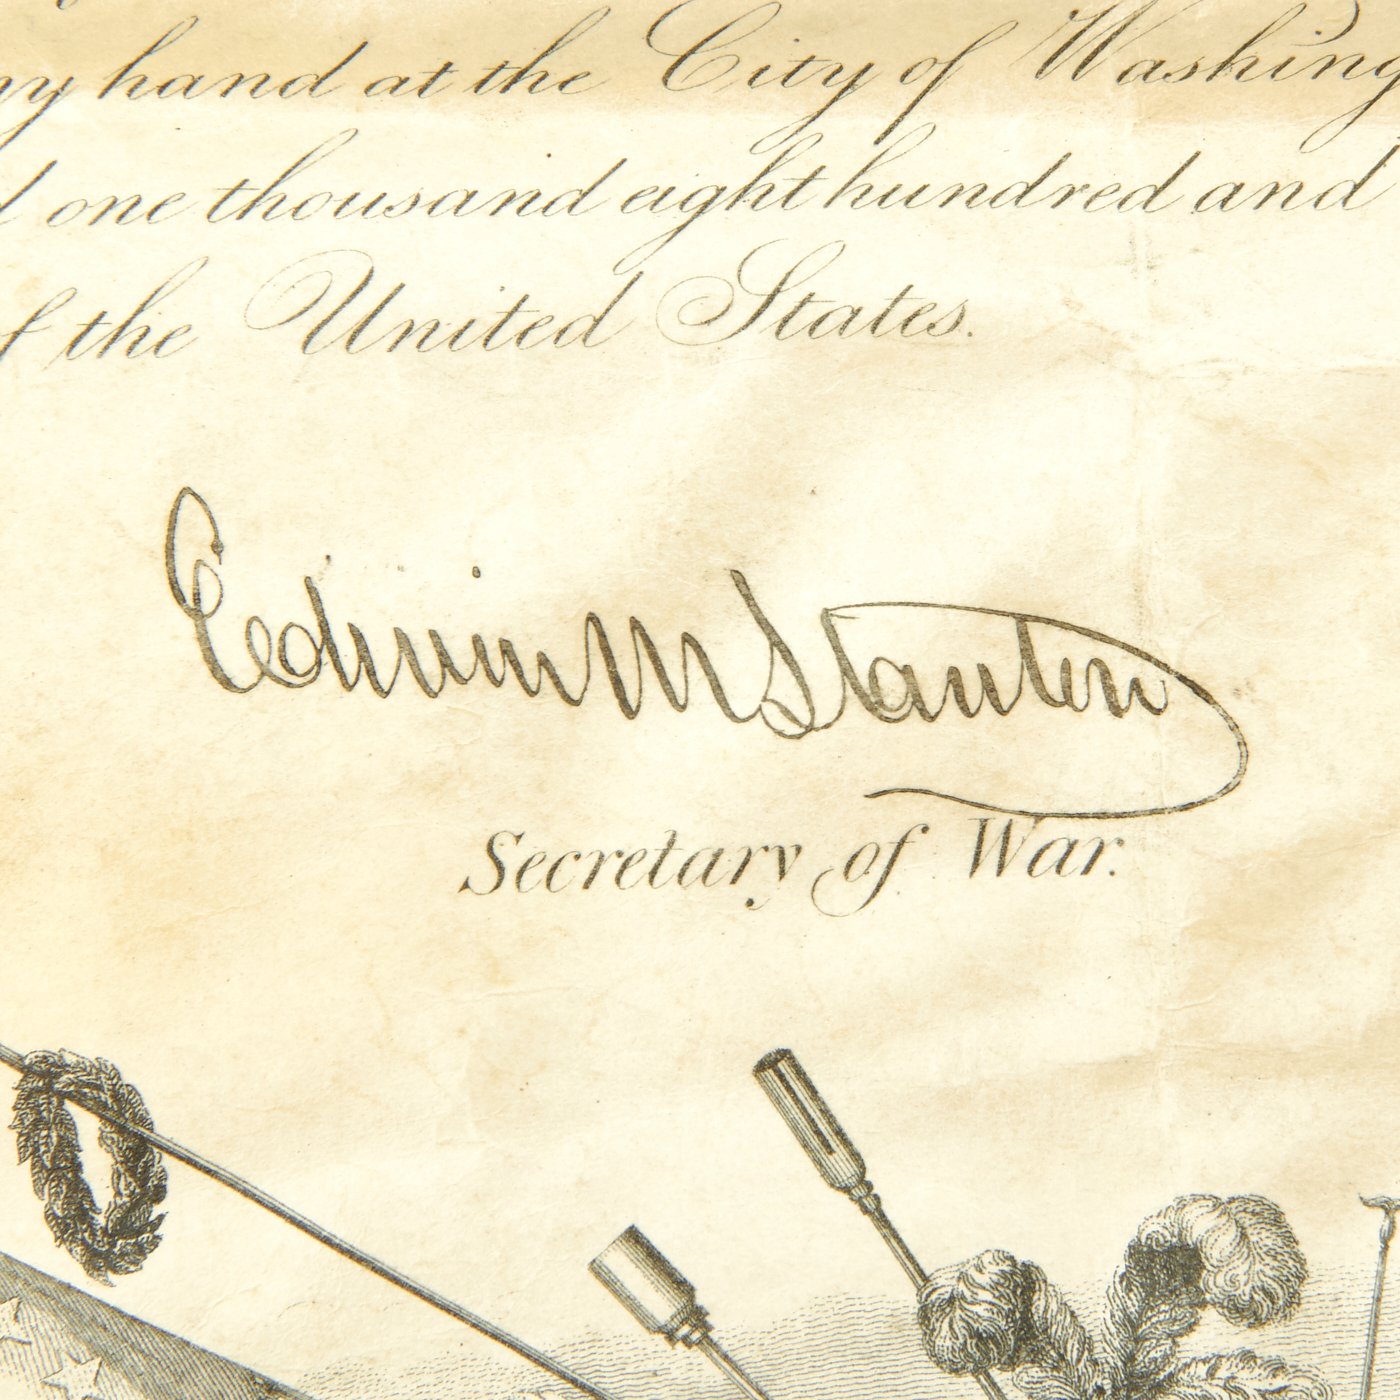 my hand at the City of Washing
d one thousand eight hundred and
of the United States.
Edwin M Stanton
Secretary of War.